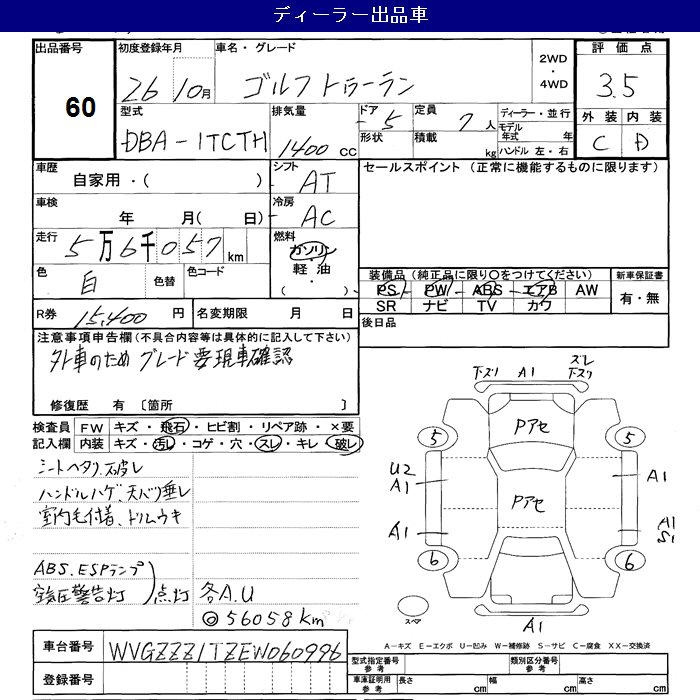 ディーラー出品車
出品番号 60
初度登録年月 26 10月
車名・グレード ゴルフトゥーラン
2WD・4WD
評価点 3.5
外装 C 内装 D
型式 DBA-1TCTH
排気量 1400 CC
ドア 5 形状
定員 7人 積載 kg
ディーラー・並行
モデル年式 年
ハンドル 左・右
車歴 自家用・( )
シフト AT
車検 年 月( 日)
冷房 AC
走行 5万6千057km
燃料 ガソリン・軽油・( )
色 白 色替 色コード
R券 15,400円
名変期限 月 日
セールスポイント (正常に機能するものに限ります)
装備品(純正品に限り○をつけてください)
PS PW ABS エアB AW
SR ナビ TV カワ
新車保証書 有・無
後日品
注意事項申告欄(不具合内容等は具体的に記入して下さい)
外車のため グレード要現車確認
修復歴 有 〔箇所 〕
検査員 FW キズ・飛石・ヒビ割・リペア跡・×要
記入欄 内装 キズ・汚レ・コゲ・穴・スレ・キレ・破レ
シートヘタリ、破レ
ハンドルハゲ、天バリ垂レ
室内毛付着、ドリムウキ
ABS、ESPランプ
空気圧警告灯 点灯
各A.U
◎56058km
下スリ A1 スレ 下スリ
Pアセ
5 5
U2 A1
A1
Pアセ
A1
A1 S1
6 6
スペア
A1
A-キズ E-エクボ U-凹み W-補修跡 S-サビ C-腐食 XX-交換済
車台番号 WVGZZZ1TZEW060996
登録番号
型式指定番号 参考
類別区分番号 参考
車庫証明用 参考 長さ cm 幅 cm 高さ cm